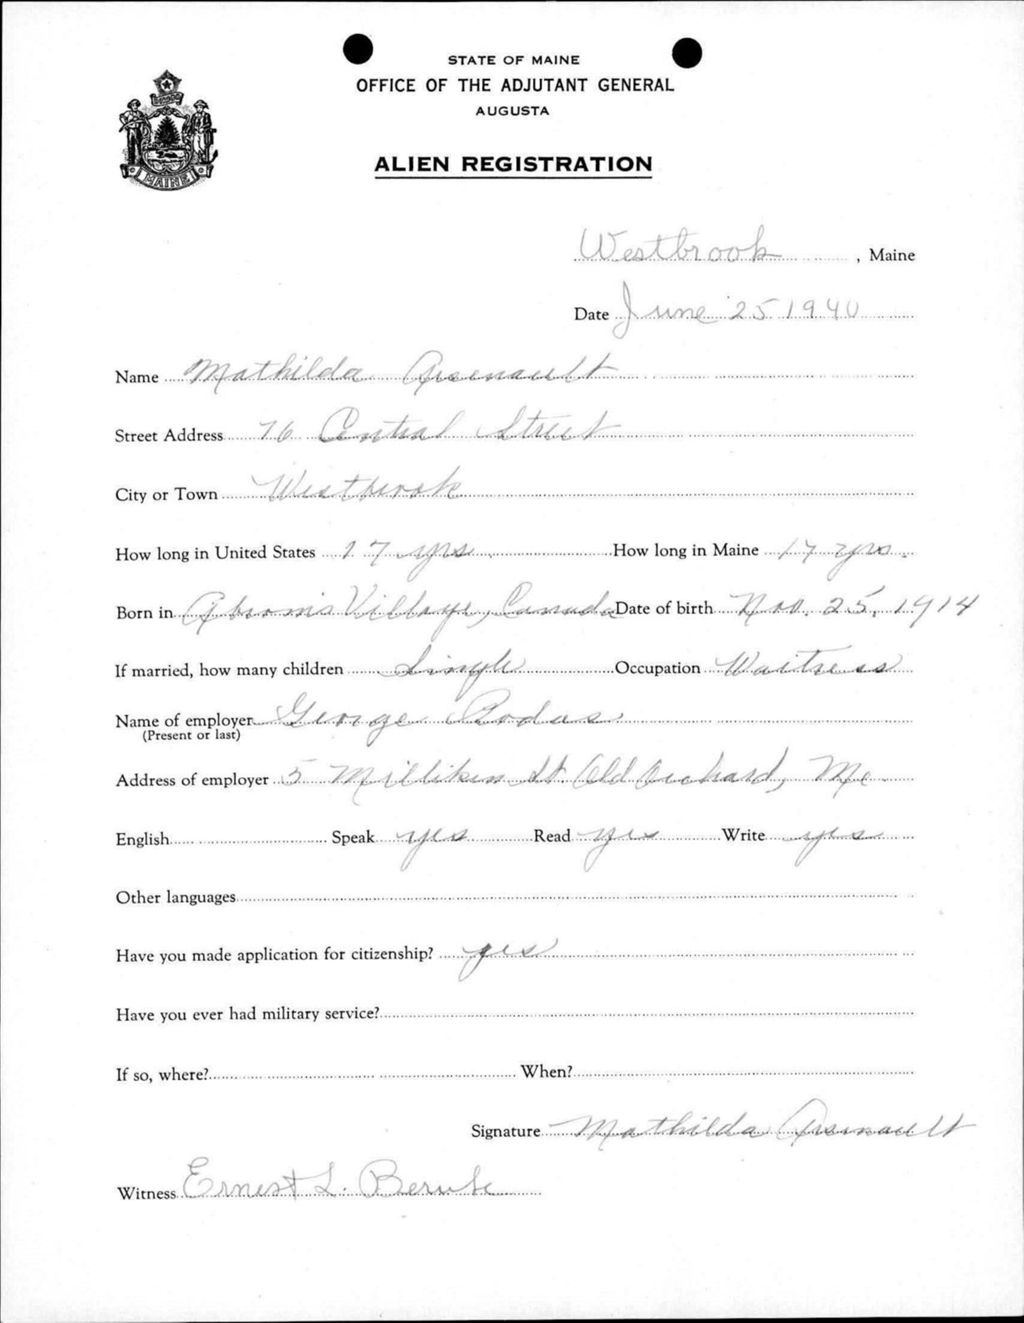 STATE OF MAINE
OFFICE OF THE ADJUTANT GENERAL
AUGUSTA
ALIEN REGISTRATION
MAINE
Westbrook, Maine
Date June 25 1940
Name Mathilda Arsenault
Street Address 76 Central Street
City or Town Westbrook
How long in United States 17 yrs How long in Maine 17 yrs.
Born in Abrom's Village, Canada Date of birth Nov. 25, 1914
If married, how many children Single Occupation Waitress
Name of employer George Rodas
(Present or last)
Address of employer 5 Milliken St Old Orchard, Me
English Speak yes Read yes Write yes
Other languages
Have you made application for citizenship? yes
Have you ever had military service?
If so, where? When?
Signature Mathilda Arsenault
Witness Ernest L. Berube